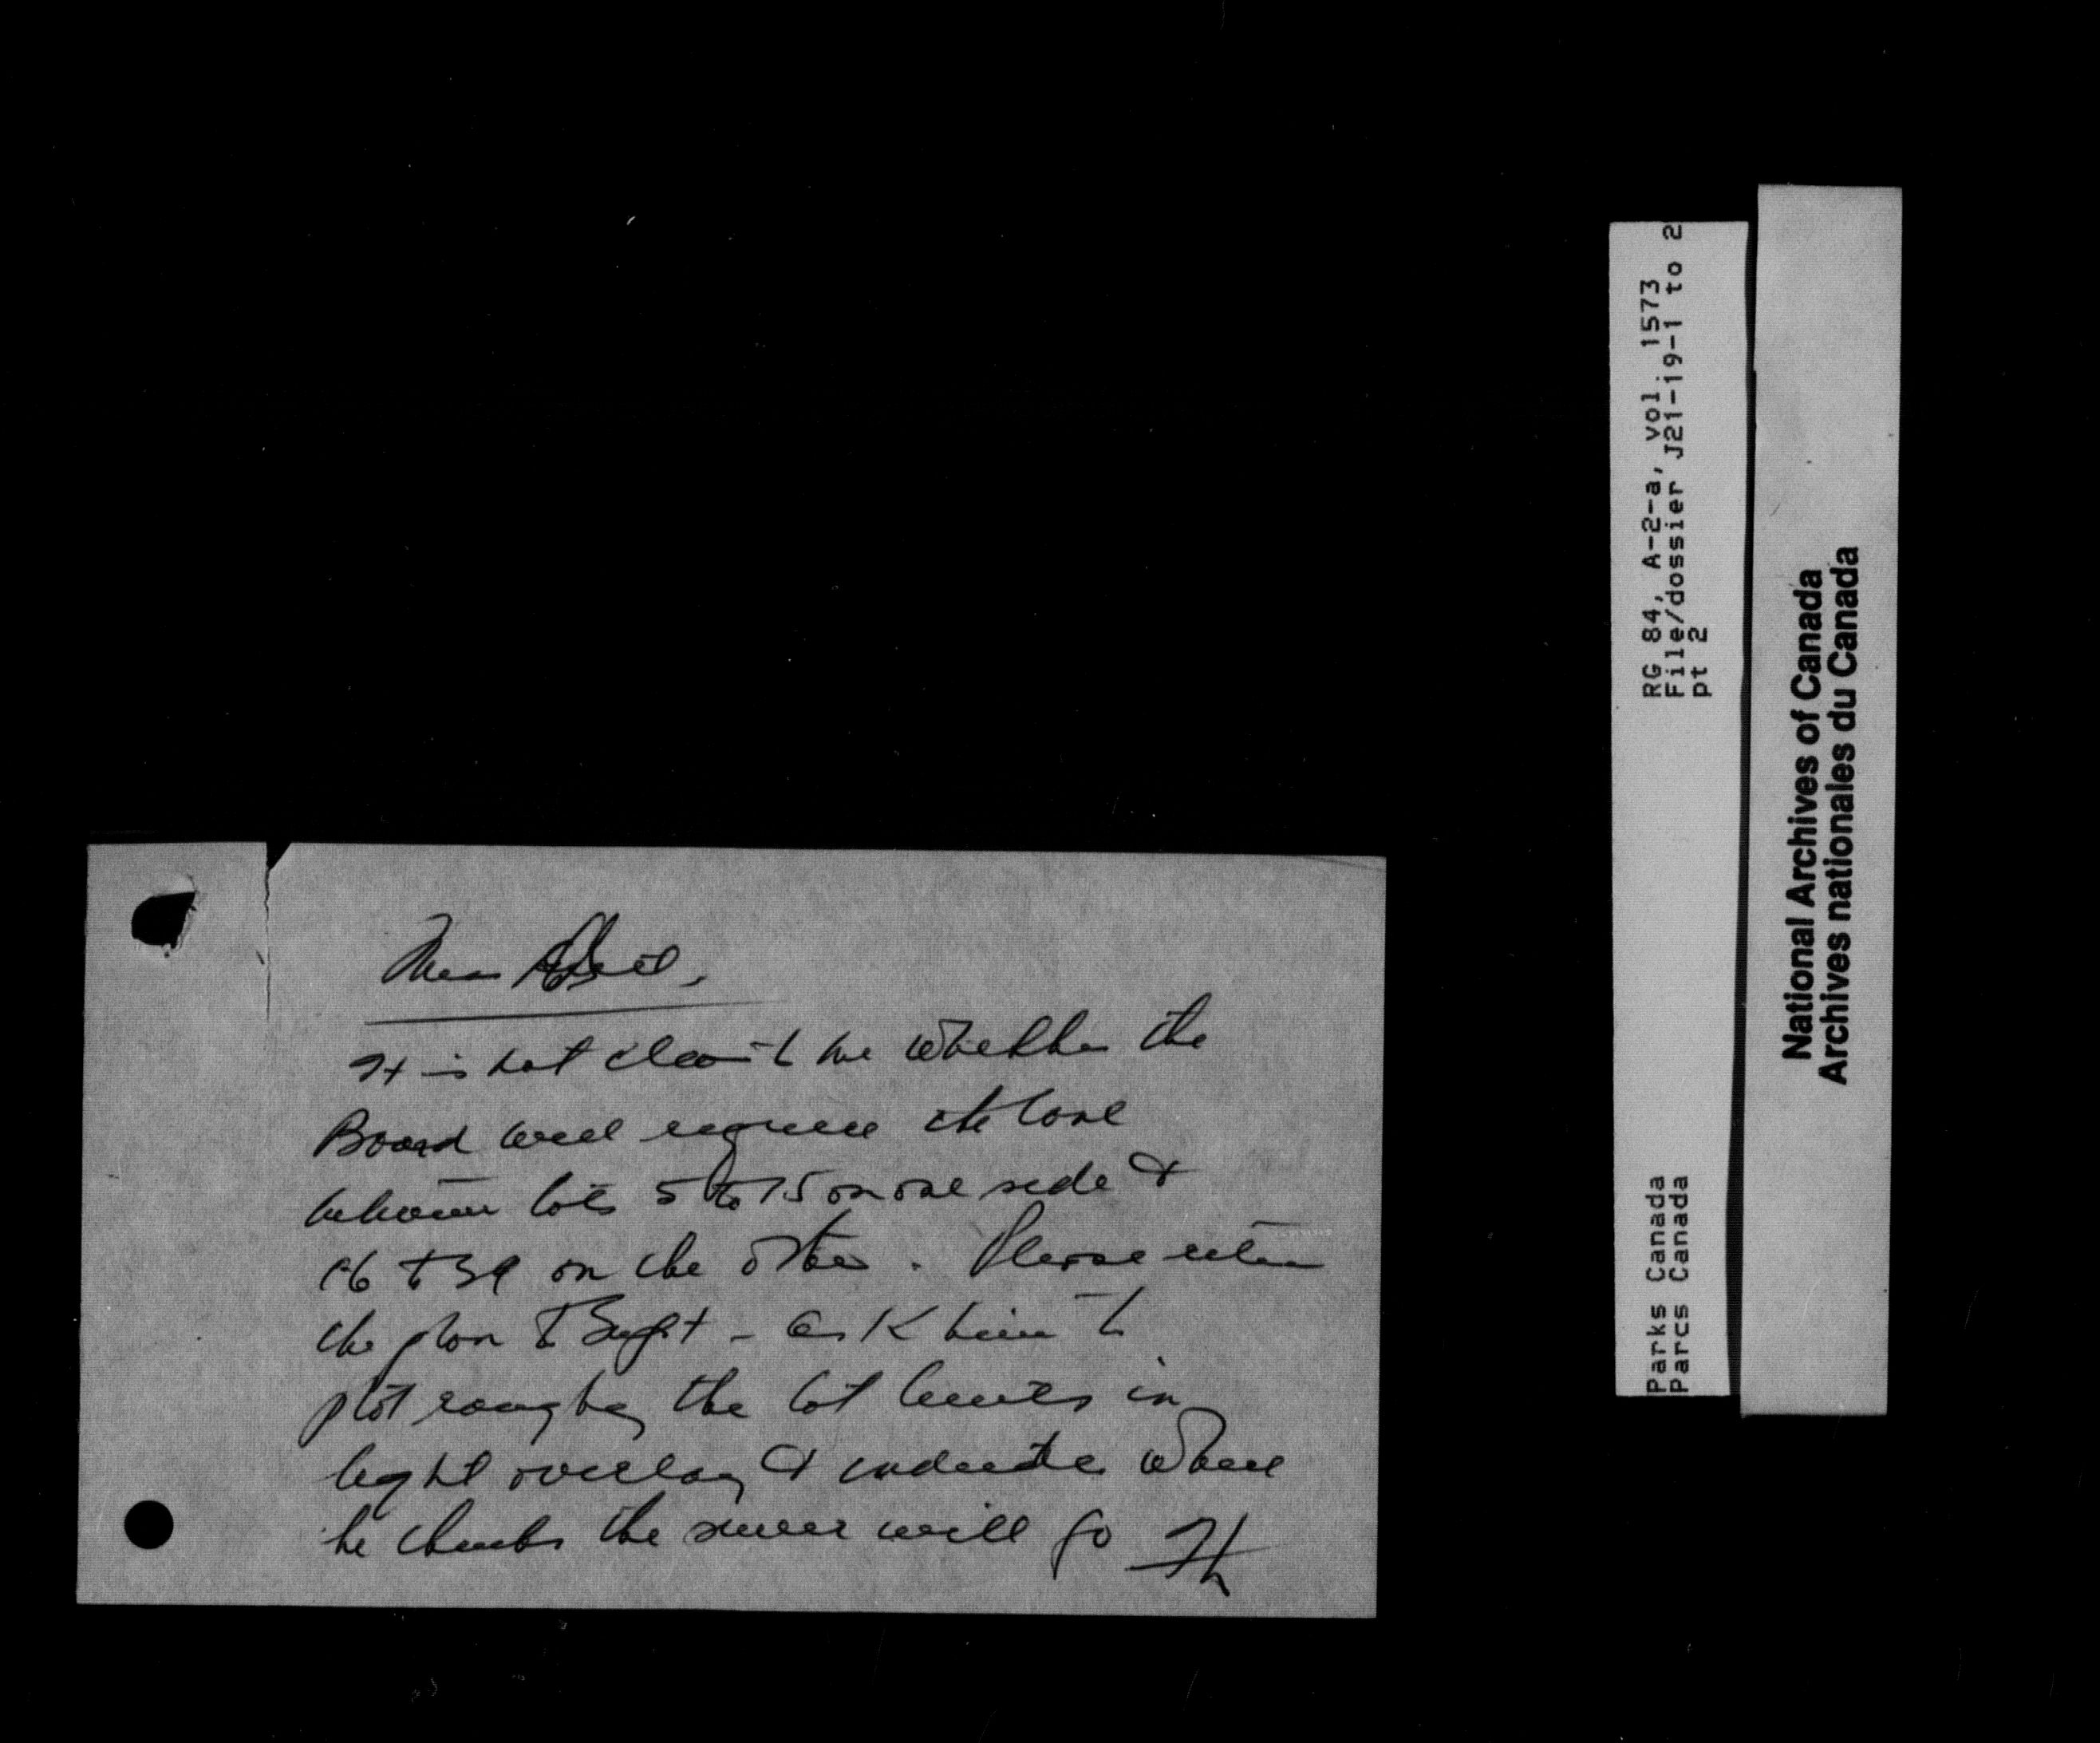 It is not clear to me whether the
Board will require the lane
between lots 5 to 15 on one side &
16 to on the other. Please return
the plan to Supt - ask him to
plot roughly the lot limits in
light overlay & indicate where
he thinks the sewer will go
RG 84, A-2-a, vol. 1573
File/dossier J21-19-1 to 2
pt 2
Parks Canada
Parcs Canada
National Archives of Canada
Archives nationales du Canada